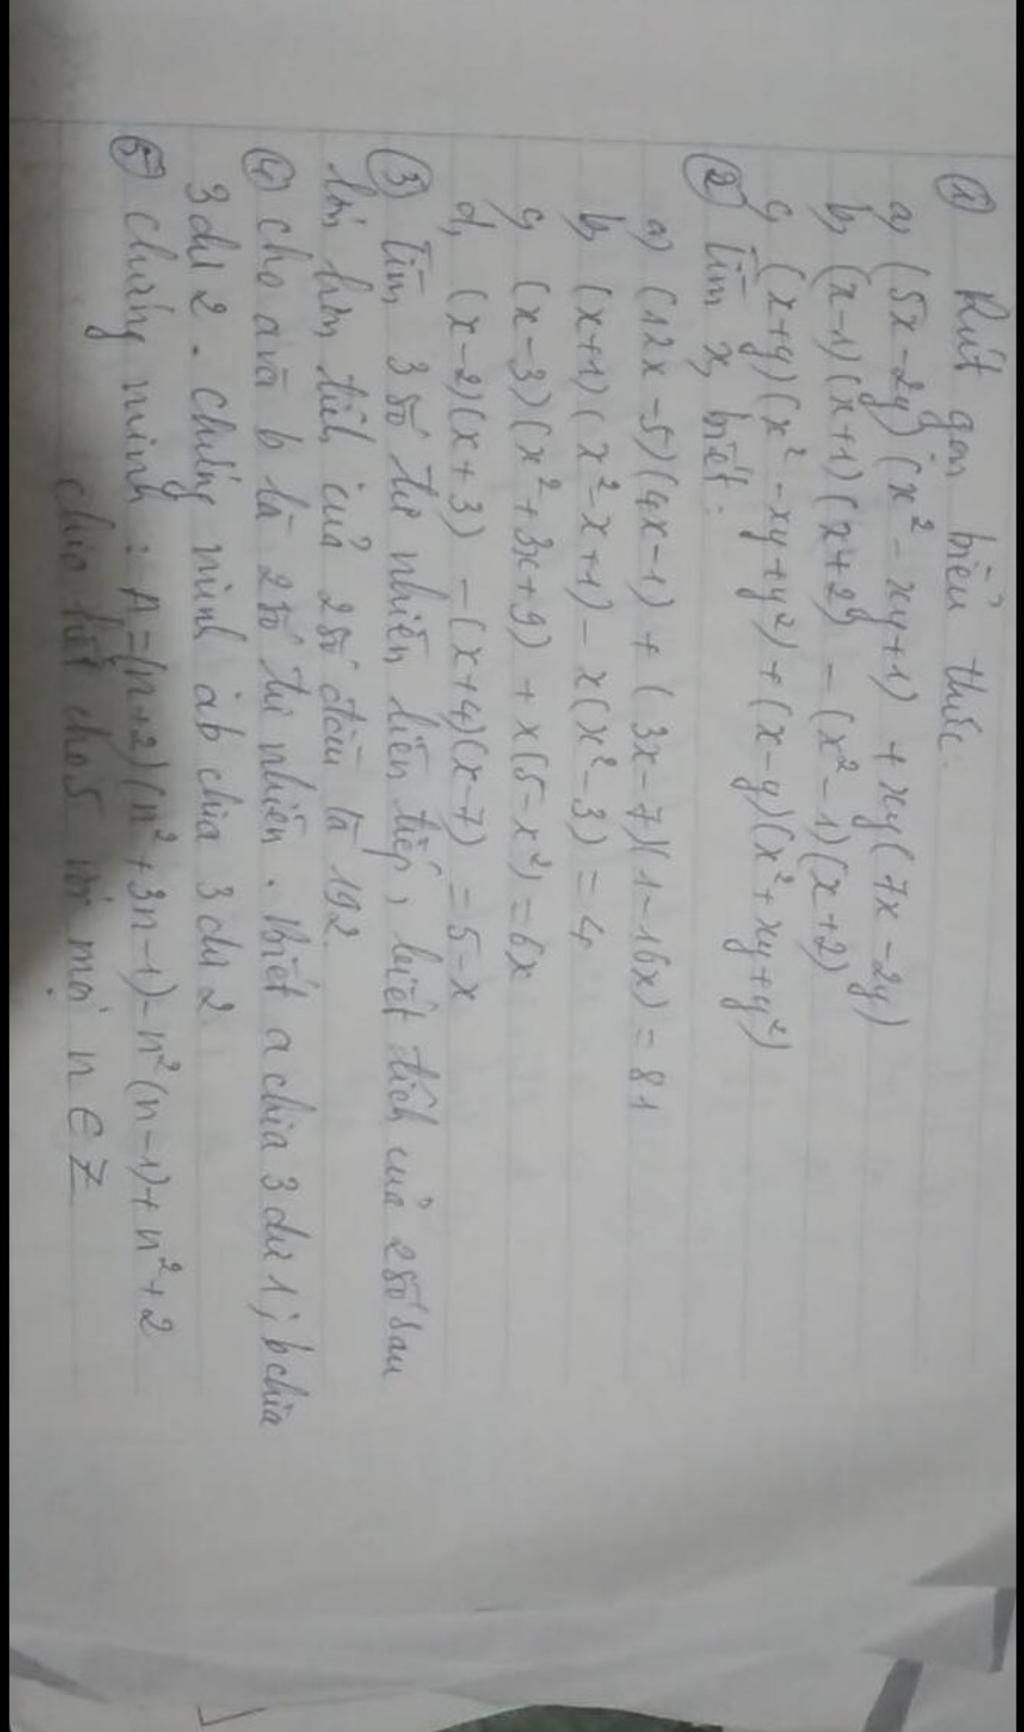 ① Rút gọn biểu thức.
a, (5x-2y)(x²-xy+1) + xy(7x-2y)
b, (x-1)(x+1)(x+2) - (x²-1)(x+2)
c, (x+y)(x²-xy+y²)+(x-y)(x²+xy+y²)
② Tìm x, biết:
a) (12x-5)(4x-1) + (3x-7)(1-16x) = 81
b, (x+1)(x²-x+1) - x(x²-3) = 4
c, (x-3)(x²+3x+9) + x(5-x²) = 6x
d, (x-2)(x+3) - (x+4)(x-7) = 5-x
③ Tìm 3 số tự nhiên liên tiếp, biết tích của 2 số sau
lớn hơn tích của 2 số đầu là 192.
④ cho a và b là 2 số tự nhiên. Biết a chia 3 dư 1; b chia
3 dư 2. Chứng minh ab chia 3 dư 2
⑤ Chứng minh : A=(n+2)(n²+3n-1)-n²(n-1)+n²+2
chia hết cho 5 với mọi n ∈ Z